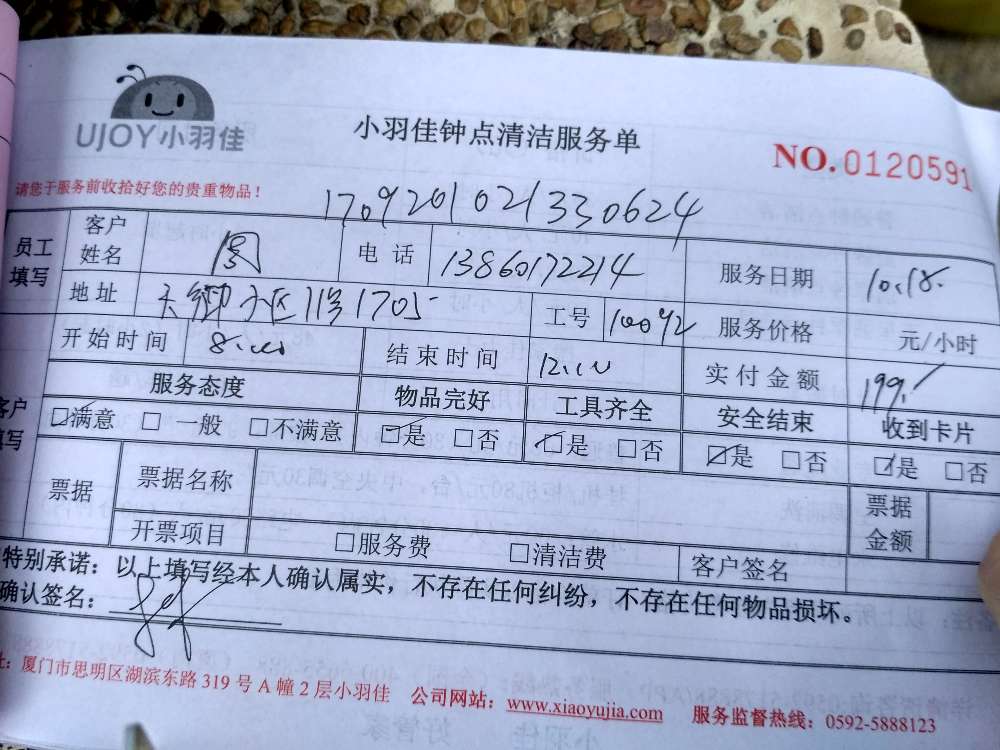 UJOY小羽佳
小羽佳钟点清洁服务单
NO.0120591
请您于服务前收拾好您的贵重物品！
1709201021330624
员工填写 客户姓名 周 电话 13860172214 服务日期 10.18.
地址 天御小区11号1705 工号 10092 服务价格 元/小时
开始时间 8:00 结束时间 12:00 实付金额 199.
服务态度 物品完好 工具齐全 安全结束 收到卡片
☑满意 □一般 □不满意 ☑是 □否 ☑是 □否 ☑是 □否 ☑是 □否
票据 票据名称 票据金额
开票项目 □服务费 □清洁费 客户签名
特别承诺：以上填写经本人确认属实，不存在任何纠纷，不存在任何物品损坏。
确认签名：
址：厦门市思明区湖滨东路 319 号 A 幢 2 层小羽佳 公司网站：www.xiaoyujia.com 服务监督热线：0592-5888123